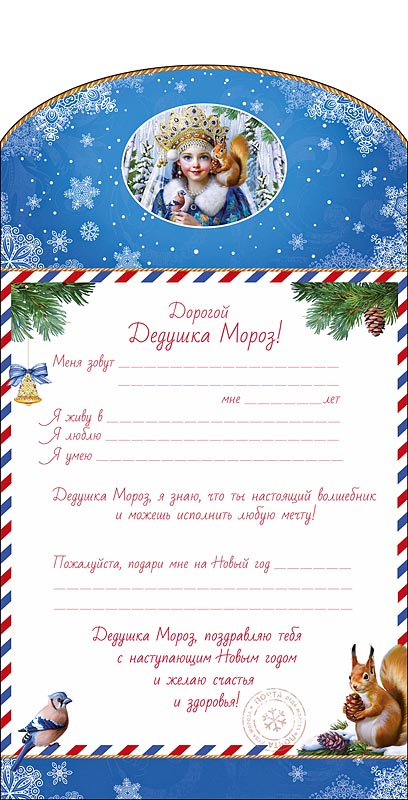 Дорогой
Дедушка Мороз!
Меня зовут
мне лет
Я живу в
Я люблю
Я умею
Дедушка Мороз, я знаю, что ты настоящий волшебник
и можешь исполнить любую мечту!
Пожалуйста, подари мне на Новый год
Дедушка Мороз, поздравляю тебя
с наступающим Новым годом
и желаю счастья
и здоровья!
ПОЧТА